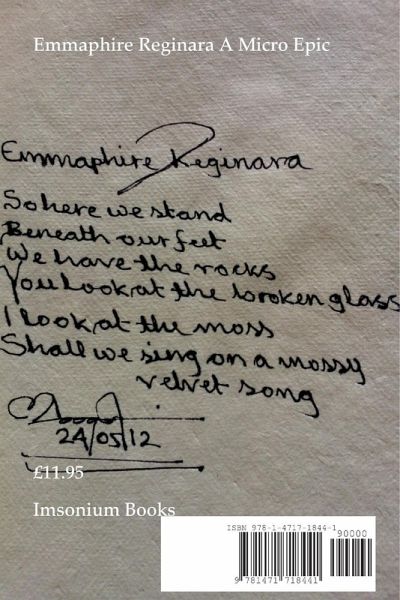 Emmaphire Reginara A Micro Epic
Emmaphire Reginara
So here we stand
Beneath our feet
We have the rocks
You look at the broken glass
I look at the moss
Shall we sing on a mossy
velvet song
24/05/12
£11.95
Imsonium Books
ISBN 978-1-4717-1844-1
90000
9 781471 718441